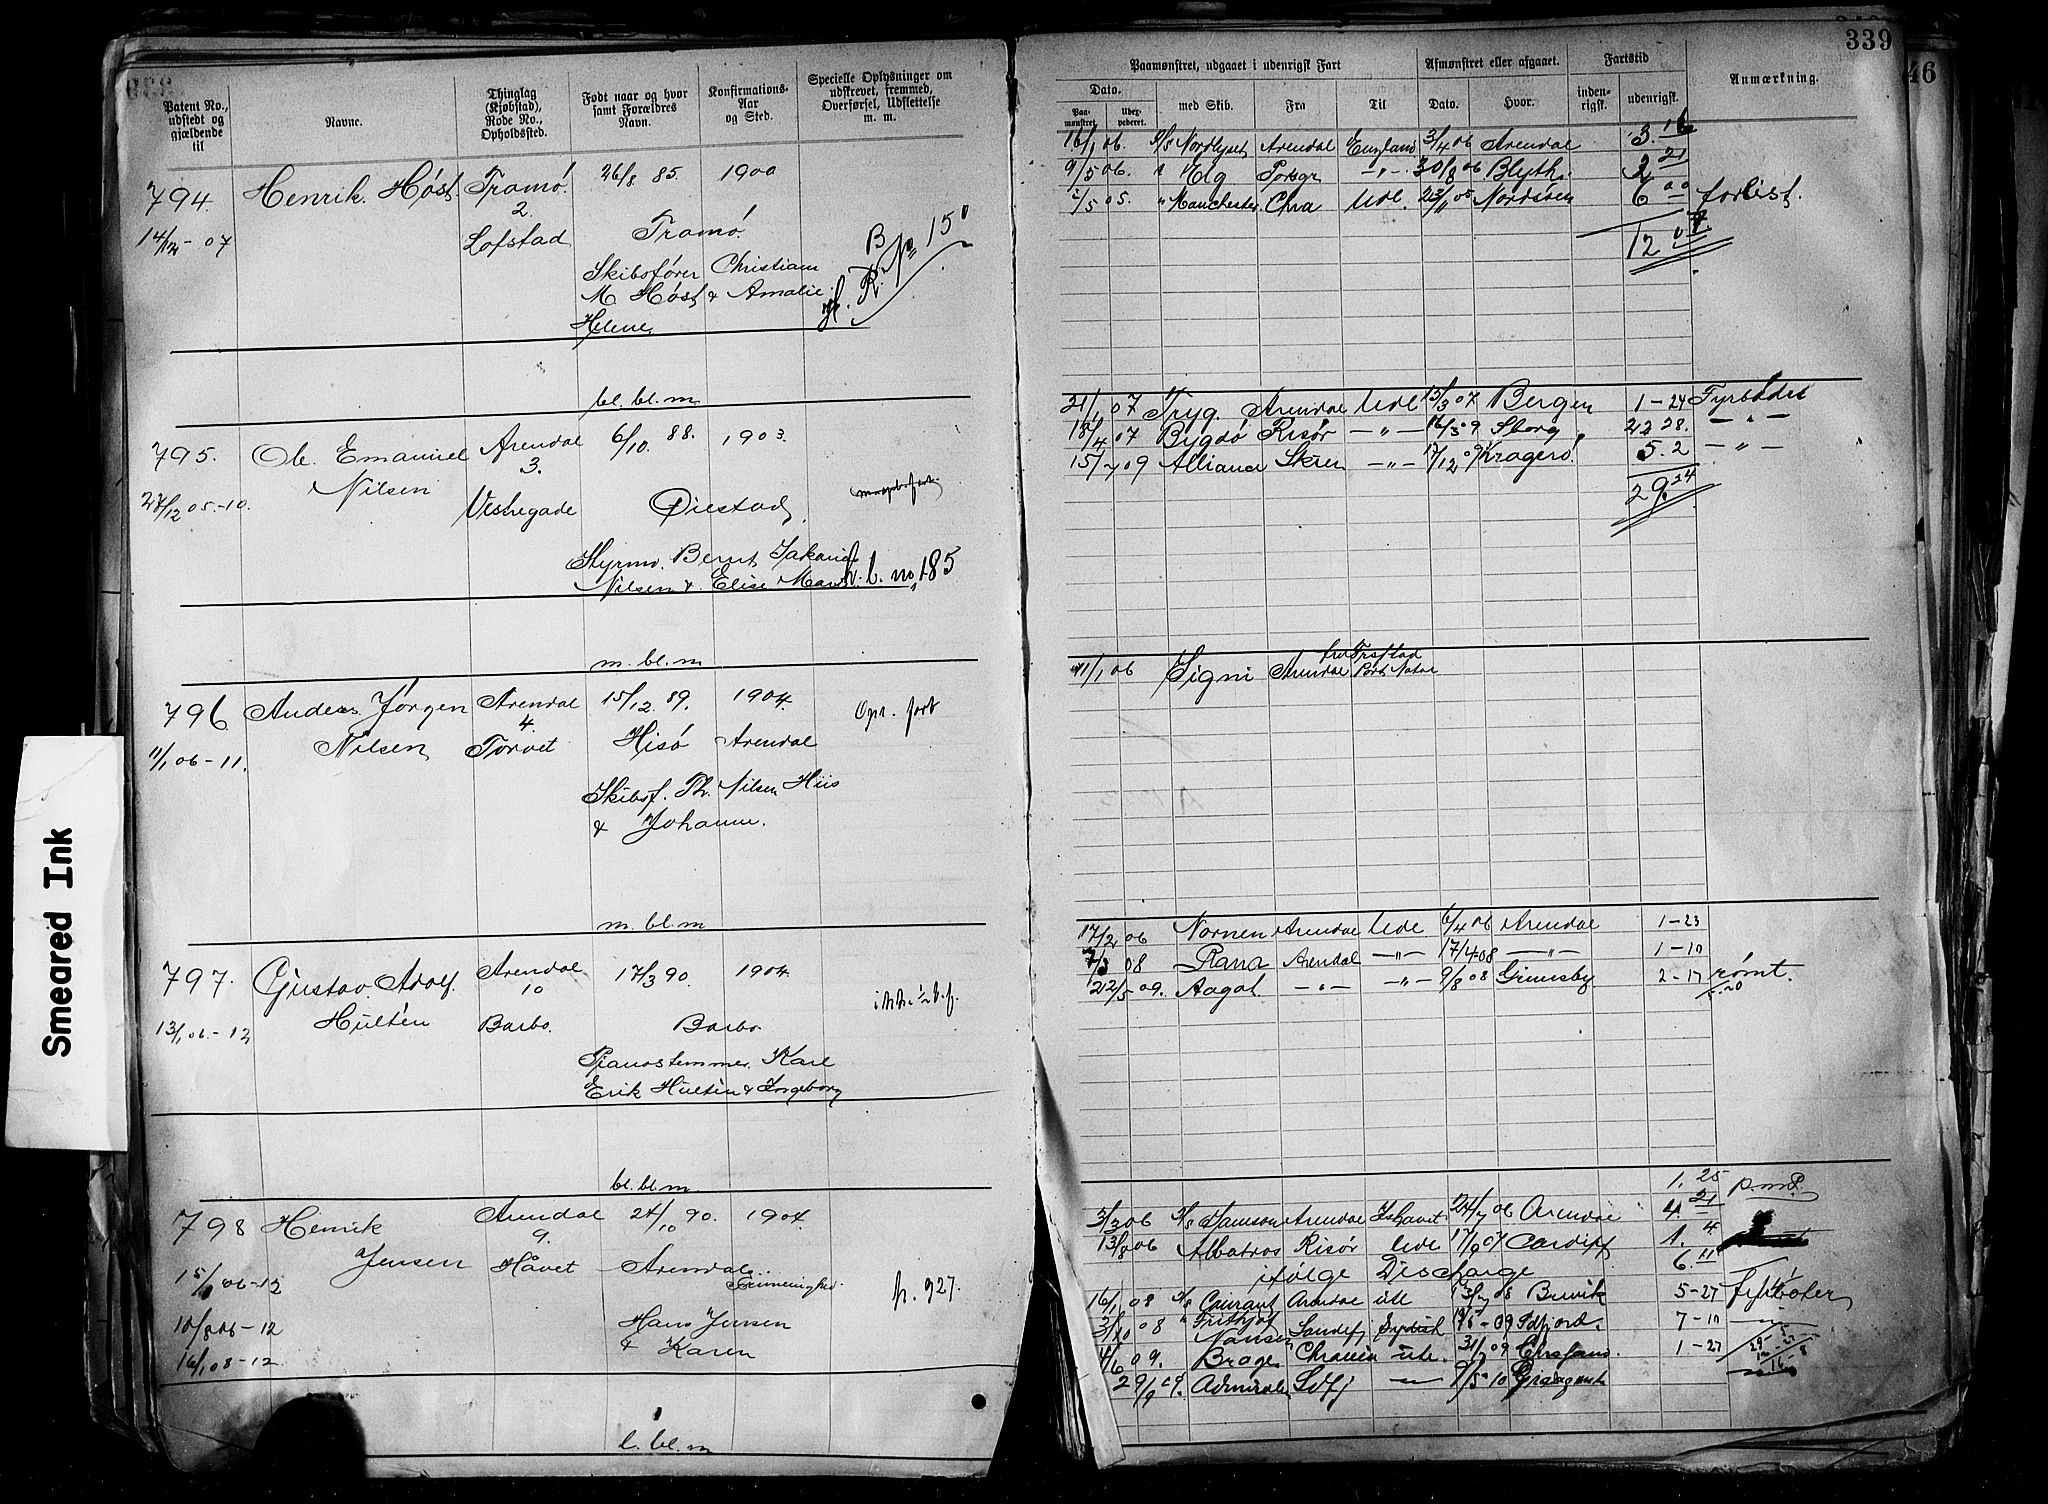 339
46
Smeared Ink
Patent No., udstedt og gjældende til
Navne.
Thinglag (Kjøbstad), Rode No., Opholdssted.
Født naar og hvor samt Forældres Navn.
Konfirmations-Aar og Sted.
Specielle Oplysninger om udskrevet, fremmed, Overførsel, Udslettelse m. m.
794. Henrik Høst Tromø. 26/8 85. 1900
2.
14/12 - 07 Lofstad Tromø.
Skibsfører Christian
M Høst & Amalie
Helene
bl. bl. m
795. Ole Emanuel Arendal 6/10 88. 1903
Nilsen 3.
27/12 05.-10. Vestregade Øiestad
Styrm. Bernt
Nilsen & Elise 185
m. bl. m
796 Anders Jørgen Arendal 15/12 89. 1904. Opr. fart
Nilsen 4.
11/1 06 - 11. Torvet Hisø Arendal
Skibsf. Th. Nilsen Hiis
& Johanne.
m. bl. m
797. Gustav Adolf Arendal 17/3 90. 1904.
10
13/1 06 - 12 Hultén Barbo. Barbo
Pianostemmer Karl
Erik Hultén & Ingeborg
bl. bl. m.
798 Henrik Arendal 24/10 90. 1904.
9.
15/1 06-12 Jensen Håvet Arendal
p. 927.
10/8 06-12 Hans Jensen
16/1 08-12 & Karen
l. bl. m
Paamønstret, udgaaet i udenrigsk Fart
Afmønstret eller afgaaet.
Fartstid
Anmærkning.
Dato.
Paa-mønstret. Udex-pederet. med Skib. Fra Til Dato. Hvor. inden-rigsk. udenrigsk.
16/1 06. S/S Nordlyset Arendal England 3/4 06 Arendal 3. 16
9/5 06. " Elg Porsgr -"- 30/8 06 Blyth. 3 21
05. " Manchester Chra Udl. 23/11 05 Nordsøen 6 00 forlist.
12 07
21/1 07 Tryg. Arendal Udl 15/3 07 Bergen 1-24 Fyrbøder
18/4 07 Bygdø Risør -"- 16/5 09 28. -"-
15/7 09 Alliance -"- 17/12 09 Kragerø. 5. 2 -"-
29. 24
11/1 06 Signi Arendal Port Natal
17/2 06 Nornen Arendal Udl 6/4 06 Arendal 1-23
7/3 08 Rana Arendal -"- 17/4 08 -"- 1-10
22/5 09. Aagot -"- -"- 9/8 08 Grimsby 2-17 rømt.
1. 25
3/3 06 S/S Arendal Ishavet 24/7 06 Arendal 4. 21
13/8 06 Albatros Risør Udl 17/9 07 Cardiff 1. 4
ifølge Discharge 6. 11
16/1 08 S/S Courant Arendal Udl 13/7 08 5-27 fyrbøter
3/10 08 " Frithjof 7-10
Nansen
4/6 09. Brage Chrania Udl. 31/7 09 Chrsans. 1-27
29/9 09. Admiralen